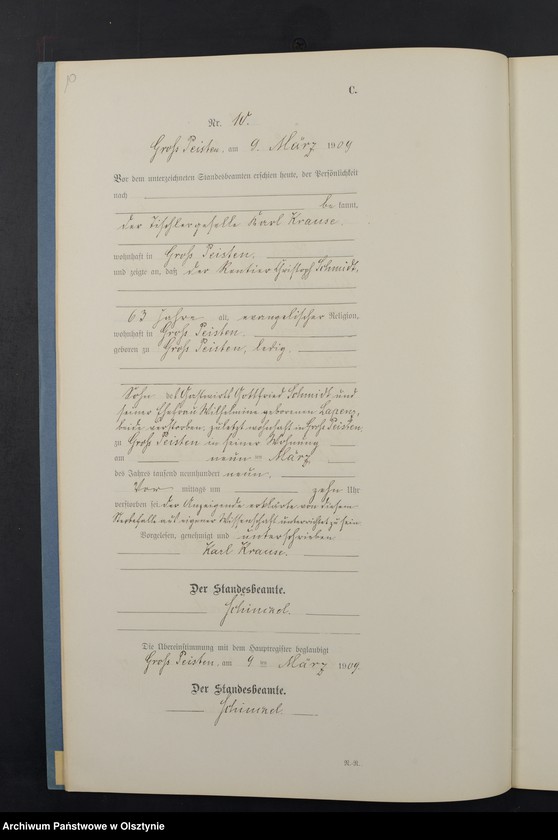 C.
Nr. 10.
Groß Peisten, am 9. März 1909
Vor dem unterzeichneten Standesbeamten erschien heute, der Persönlichkeit
nach
be kannt,
der Tischlergeselle Karl Krause,
wohnhaft in Groß Peisten,
und zeigte an, daß der Rentier Christoph Schmidt,
63 Jahre alt, evangelischer Religion,
wohnhaft in Groß Peisten
geboren zu Groß Peisten, ledig,
Sohn des Gastwirts Gottfried Schmidt und
seiner Ehefrau Wilhelmine geborenen
beide verstorben, zuletzt wohnhaft in Groß Peisten,
zu Groß Peisten in seiner Wohnung
am neun ten März
des Jahres tausend neunhundert neun,
Vor mittags um zehn Uhr
verstorben sei. Der Anzeigende erklärte von diesem
Sterbefalle aus eigener Wissenschaft unterrichtet zu sein.
Vorgelesen, genehmigt und unterschrieben
Karl Krause.
Der Standesbeamte.
Schimmel.
Die Übereinstimmung mit dem Hauptregister beglaubigt
Groß Peisten, am 9 ten März 1909
Der Standesbeamte.
Schimmel.
R.R.
Archiwum Państwowe w Olsztynie